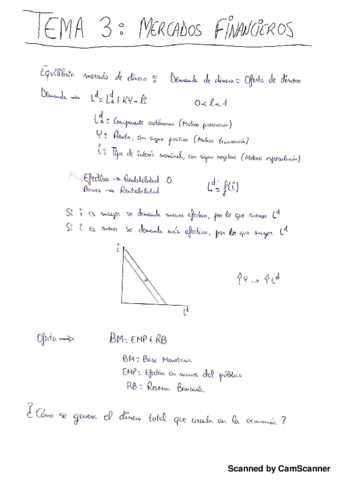 TEMA 3: MERCADOS FINANCIEROS
Equilibrio mercado de dinero: Demanda de dinero = Oferta de dinero
Demanda → L^d = L_A^d + KY - li 0 < l < 1
L_A^d: Componente autónomo (Motivo precaución)
Y: Renta, con signo positivo (Motivo transacción)
i: Tipo de interés nominal, con signo negativo (Motivo especulación)
Efectivo → Rentabilidad 0
Bonos → Rentabilidad L^d = f(i)
Si i es mayor se demanda menos efectivo, por lo que menor L^d
Si i es menor se demanda más efectivo, por lo que mayor L^d
i
↑Y → ↑L^d
L^d
Oferta → BM = EMP + RB
BM: Base Monetaria
EMP: Efectivo en manos del público
RB: Reserva Bancaria
¿Cómo se genera el dinero total que circula en la economía?
Scanned by CamScanner